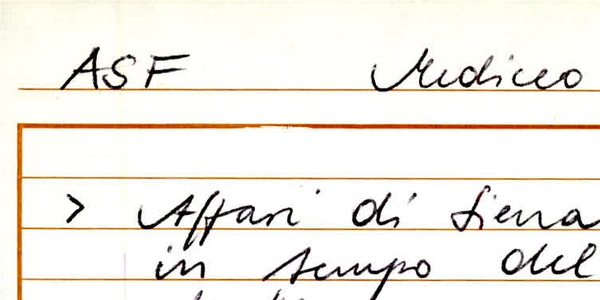 ASF Mediceo
> Affari di Siena
in tempo del